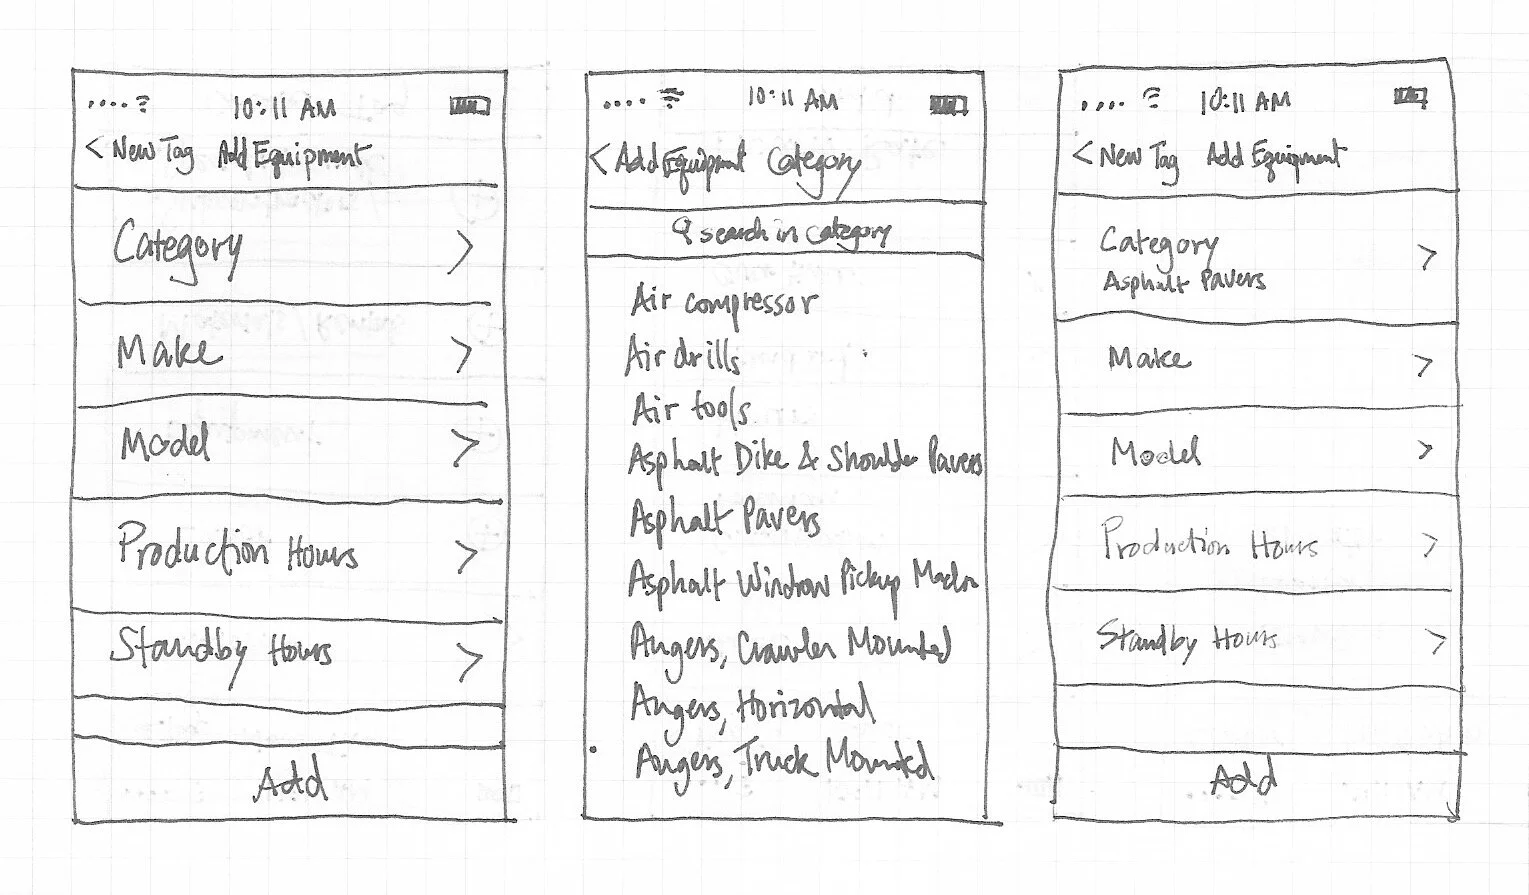 10:11 AM
< New Tag Add Equipment
Category >
Make >
Model >
Production Hours >
Standby Hours >
Add
10:11 AM
< Add Equipment Category
search in category
Air compressor
Air drills
Air tools
Asphalt Dike & Shoulder Pavers
Asphalt Pavers
Asphalt Windrow Pickup
Augers, Crawler Mounted
Augers, Horizontal
Augers, Truck Mounted
10:11 AM
< New Tag Add Equipment
Category >
Asphalt Pavers
Make >
Model >
Production Hours >
Standby Hours >
Add